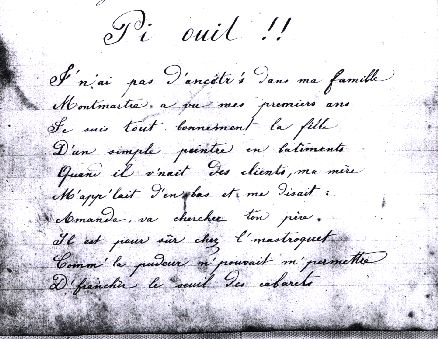 Pi ouit !!
J'n'ai pas d'ancêtr's dans ma famille
Montmartre a vu mes premiers ans
Je suis tout bonnement la fille
D'un simple peintre en batiments
Quand il v'nait des clients, ma mère
M'app'lait d'en bas et me disait :
Amanda, va chercher ton père.
Il est pour sûr chez l'mastroquet
Comm' la pudeur n'pouvait m'permettre
D'franchir le seuil des cabarets